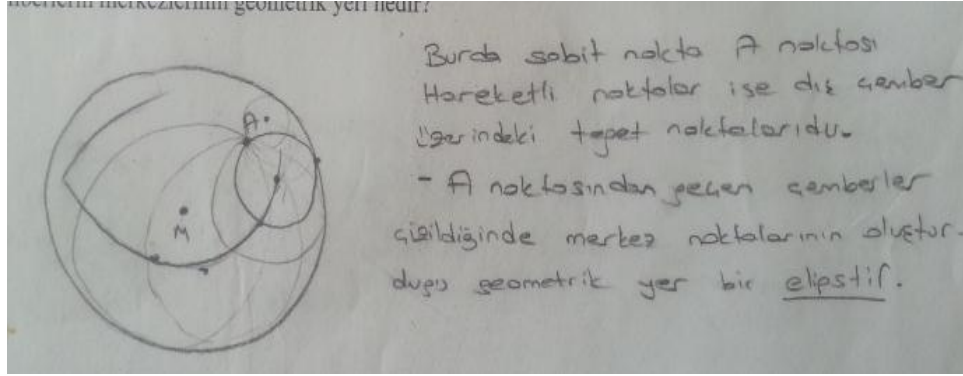 merkezlerinin geometrik yeri nedir?
Burda sabit nokta A noktası
Hareketli noktalar ise dış çember
üzerindeki teğet noktalarıdır.
- A noktasından geçen çemberler
çizildiğinde merkez noktalarının oluştur-
duğu geometrik yer bir elipstir.
A
M